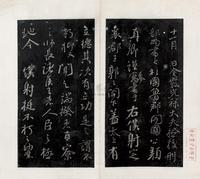 十一月日金紫光祿大夫檢校刑
部尚書上柱國魯郡開國公顏
真卿謹奉書于右僕射定
襄郡王郭公閣下蓋太上有
立德其次有立功是之謂不
朽抑又聞之端揆者百寮
之師長諸侯王者人臣之極
地今僕射挺不朽之功業